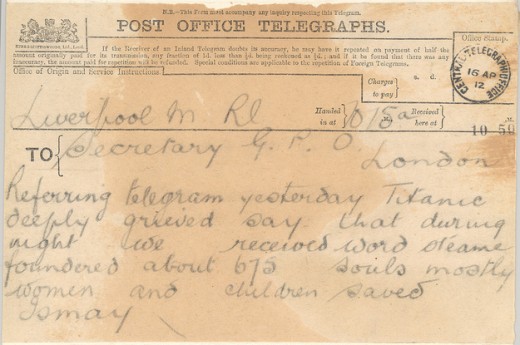 N.B.—This Form must accompany any inquiry respecting this Telegram.
POST OFFICE TELEGRAPHS.
If the Receiver of an Inland Telegram doubts its accuracy, he may have it repeated on payment of half the
amount originally paid for its transmission, any fraction of 1d. less than ½d. being reckoned as ½d.; and if it be found that there was any
inaccuracy, the amount paid for repetition will be refunded. Special conditions are applicable to the repetition of Foreign Telegrams.
Office of Origin and Service Instructions
Charges
to pay
s. d.
Office Stamp.
CENTRAL TELEGRAPH OFFICE
16 AP
12
Liverpool M Rl
Handed
in at
1015a
Received
here at
10 50
TO
Secretary G. P. O.
London
Referring telegram yesterday Titanic
deeply grieved say that during
night we received word steame
foundered about 675 souls mostly
women and children saved
Ismay